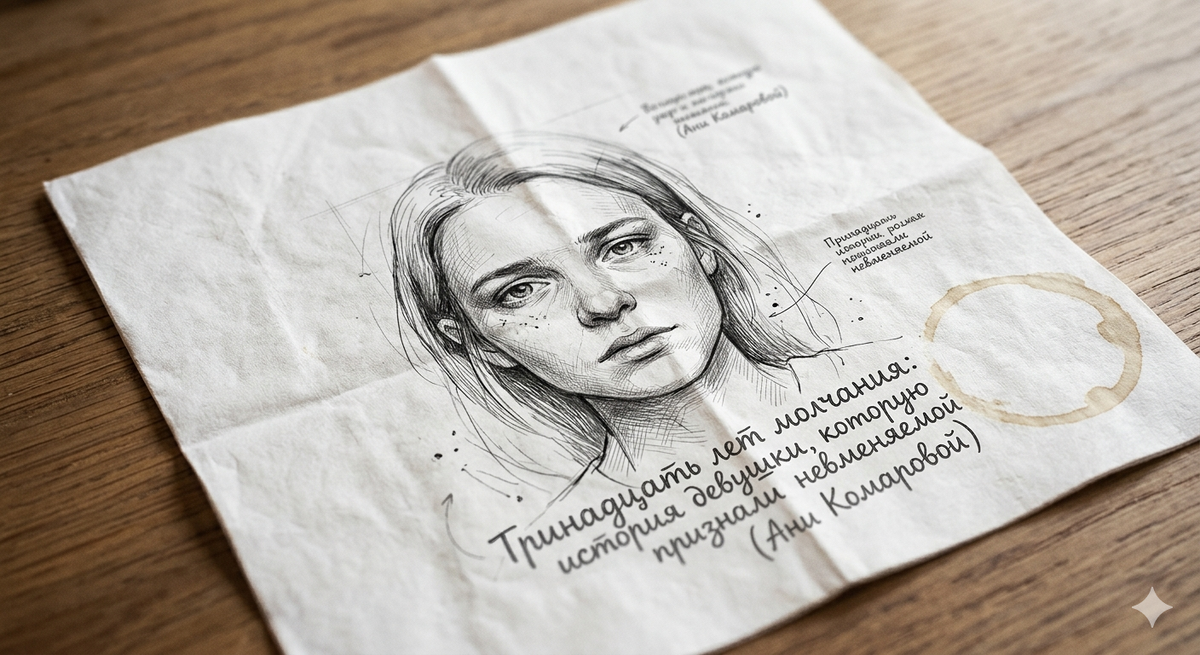 (Ани Комаровой)
невменяемой
Тринадцать лет молчания:
история девушки, которую
признали невменяемой
(Ани Комаровой)